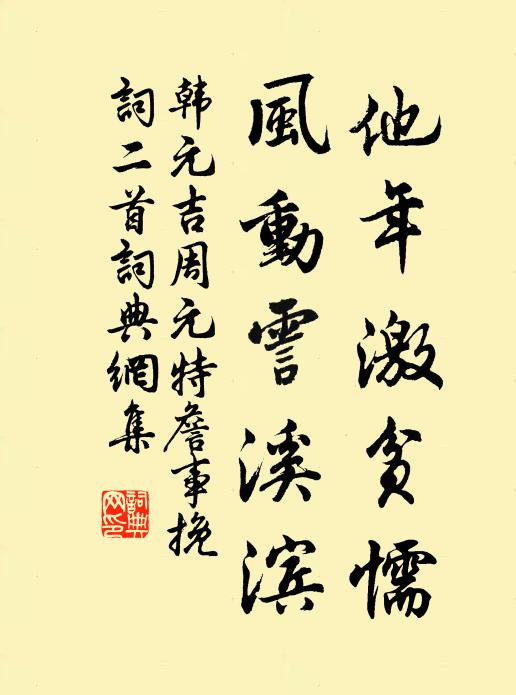 他年激貧懦
風動霅溪滨
韩元吉周元特詹事挽
詞二首詞典網集
詞典
网印